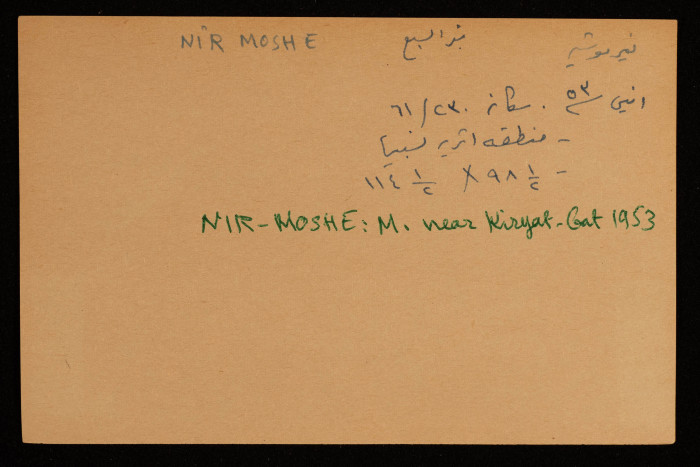 NIR MOSHE بئر السبع نير موشيه
انشئ ٥٣ . سكانه ٢٣٠ / ٦١
- منطقه اثريه نسبيا
- ٩٨ ١/٢ X ١١٤ ١/٢
NIR-MOSHE: M. near Kiryat-Gat 1953